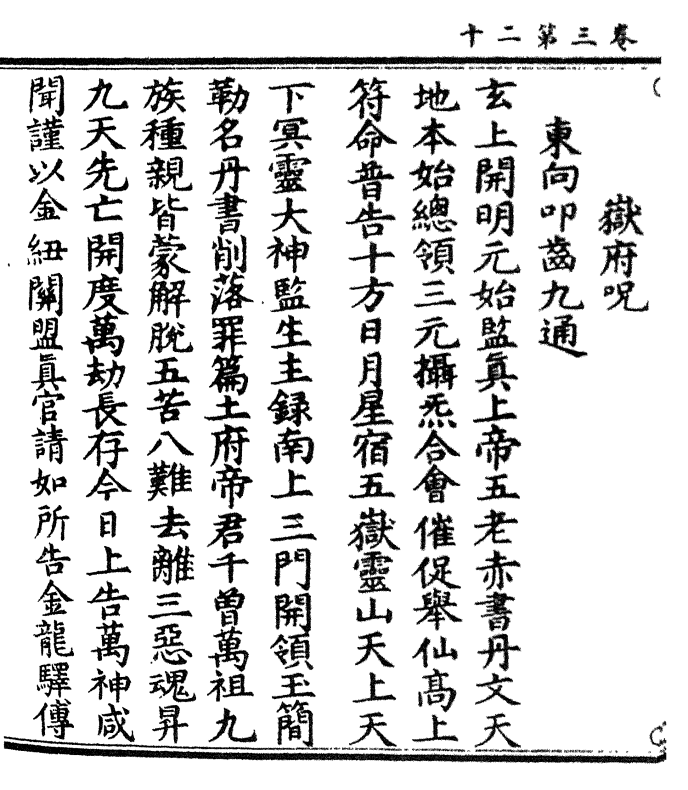 卷三第二十
嶽府呪
東向叩齒九通
玄上開明元始監眞上帝五老赤書丹文天
地本始總領三元攝炁合會催促舉仙高上
符命普告十方日月星宿五嶽靈山天上天
下冥靈大神監生主録南上三門開領玉簡
勒名丹書削落罪篇土府帝君千曾萬祖九
族種親皆蒙解脫五苦八難去離三惡魂昇
九天先亡開度萬劫長存今日上告萬神咸
聞謹以金紐關盟眞官請如所告金龍驛傳